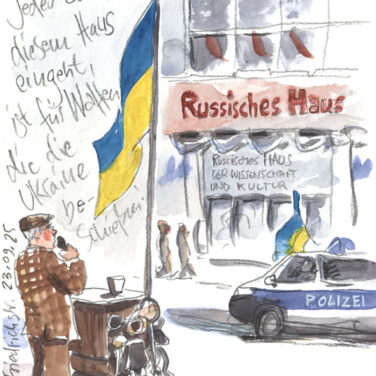 Jeder
diesem Haus
eingeht,
ist für Waffen
die die
Ukraine
be-
schießen!
Russisches Haus
Russisches HAUS
DER WISSENSCHAFT
UND KULTUR
POLIZEI
Friedrichstr. 23.09.25